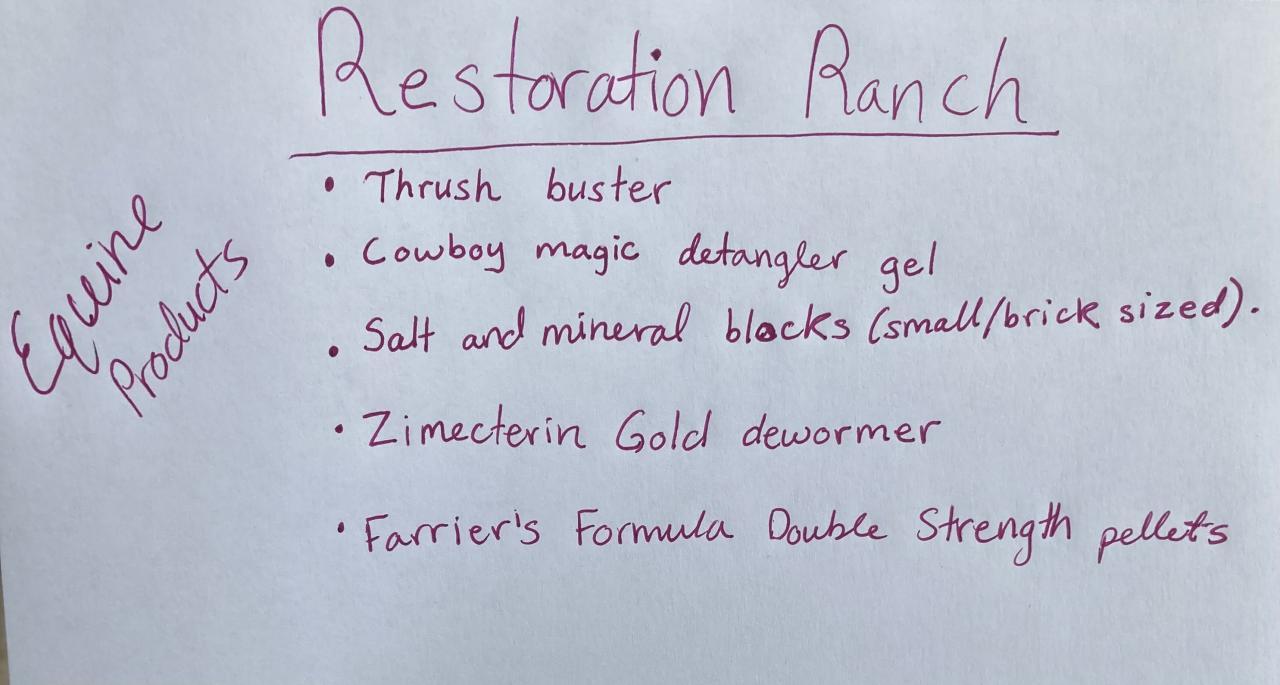 Restoration Ranch
Equine
Products
• Thrush buster
• Cowboy magic detangler gel
• Salt and mineral blocks (small/brick sized).
• Zimecterin Gold dewormer
• Farrier's Formula Double Strength pellets